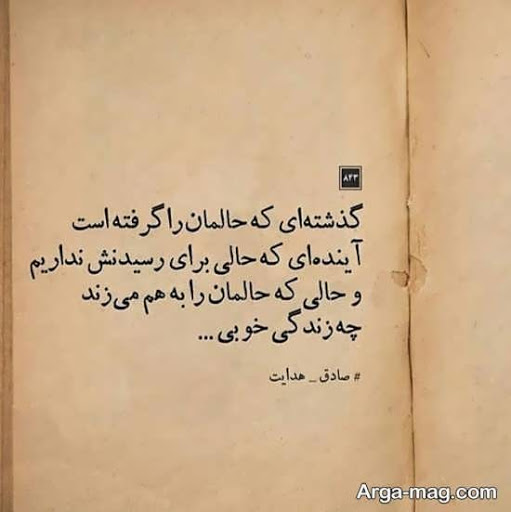 ۸۴۳
گذشته‌ای که حالمان را گرفته است
آینده‌ای که حالی برای رسیدنش نداریم
و حالی که حالمان را به هم می‌زند
چه زندگی خوبی ...
# صادق _ هدایت
Arga-mag.com